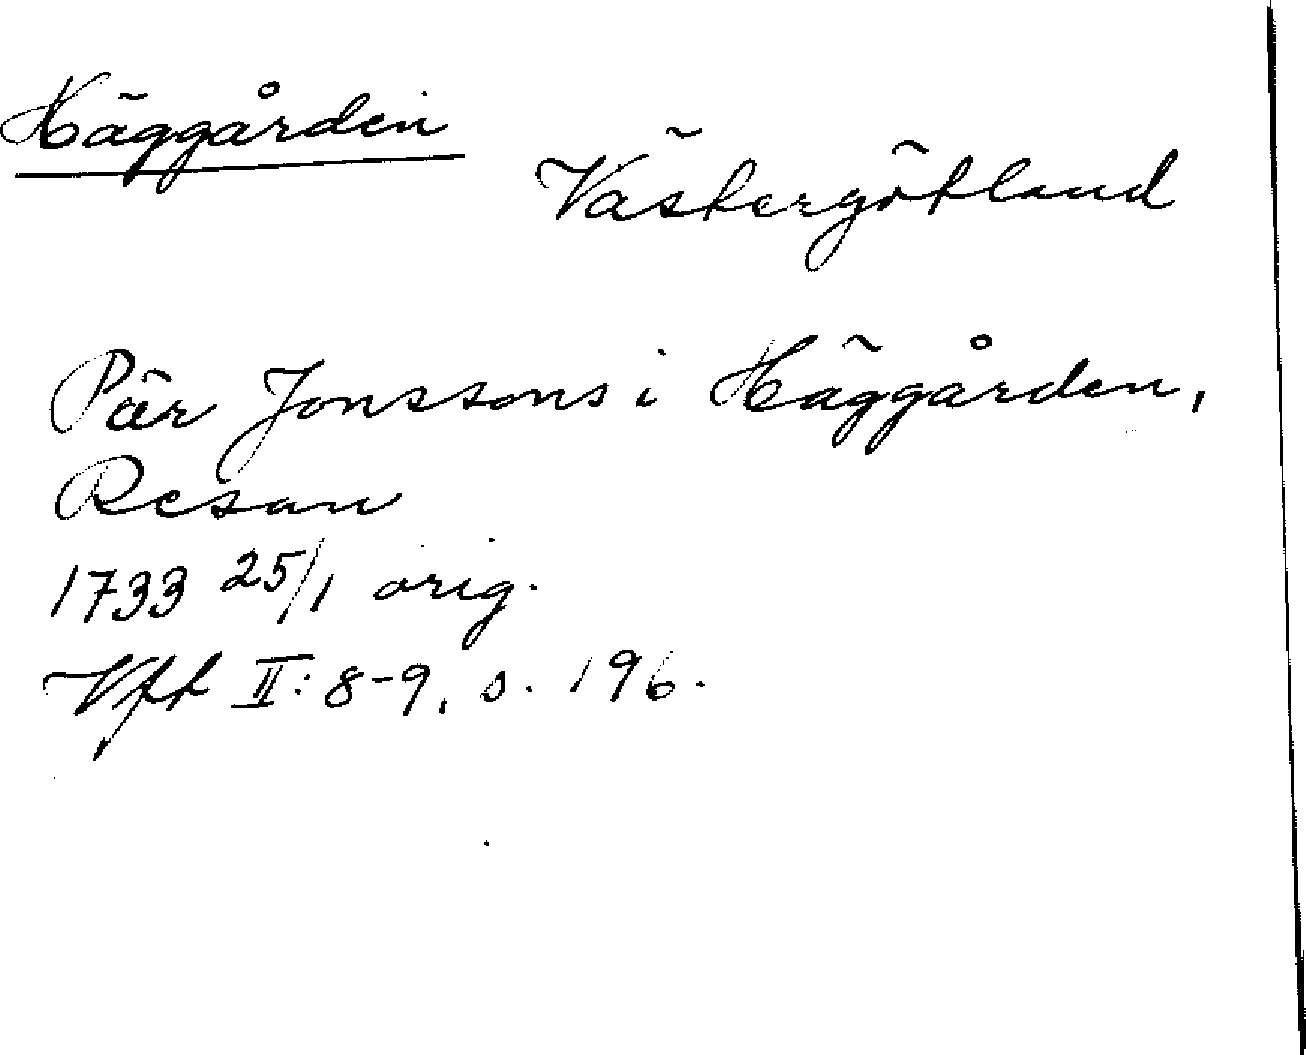 Häggården
Västergötland
Pär Jonssons i Häggården,
Resan
1733 25/1 orig.
Vft II: 8-9, s. 196.